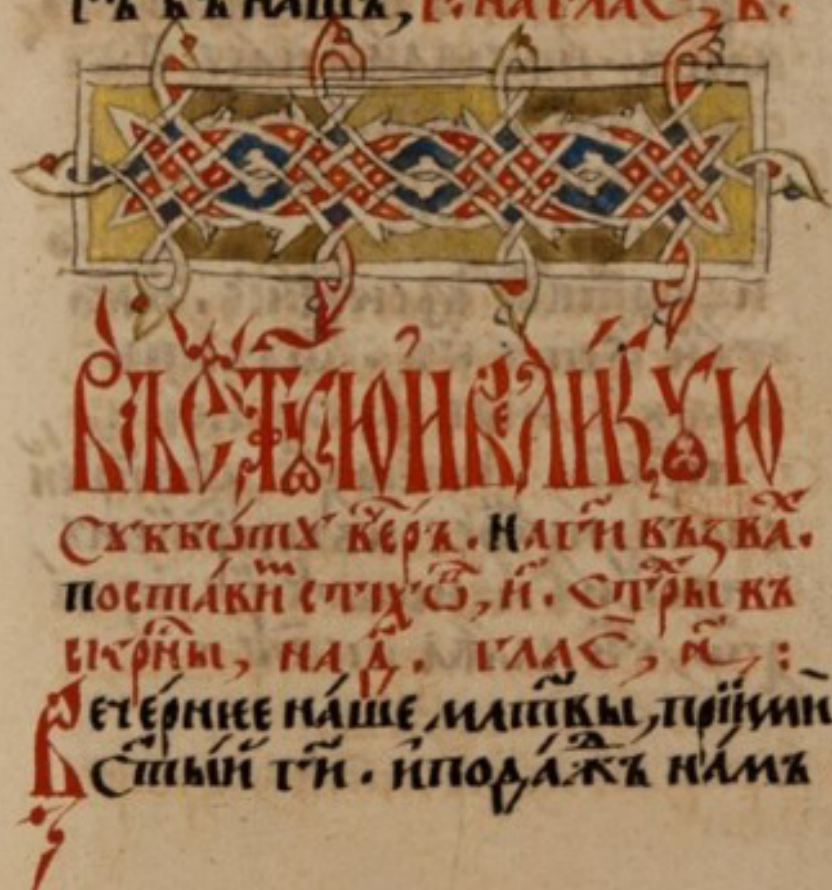 въ ст҃ꙋю и великꙋю
Сꙋббѡтꙋ ве҃чръ. На гѝ възва̑.
постави стїхѡ̑, и҃. Стр̑ы въ
вкрн̑ы, на д҃. глас, а҃:
Вече́рнее на́ше мл҃твы, прїими
ст҃ы́й гѝ. и҆ пода́ждъ на́мъ